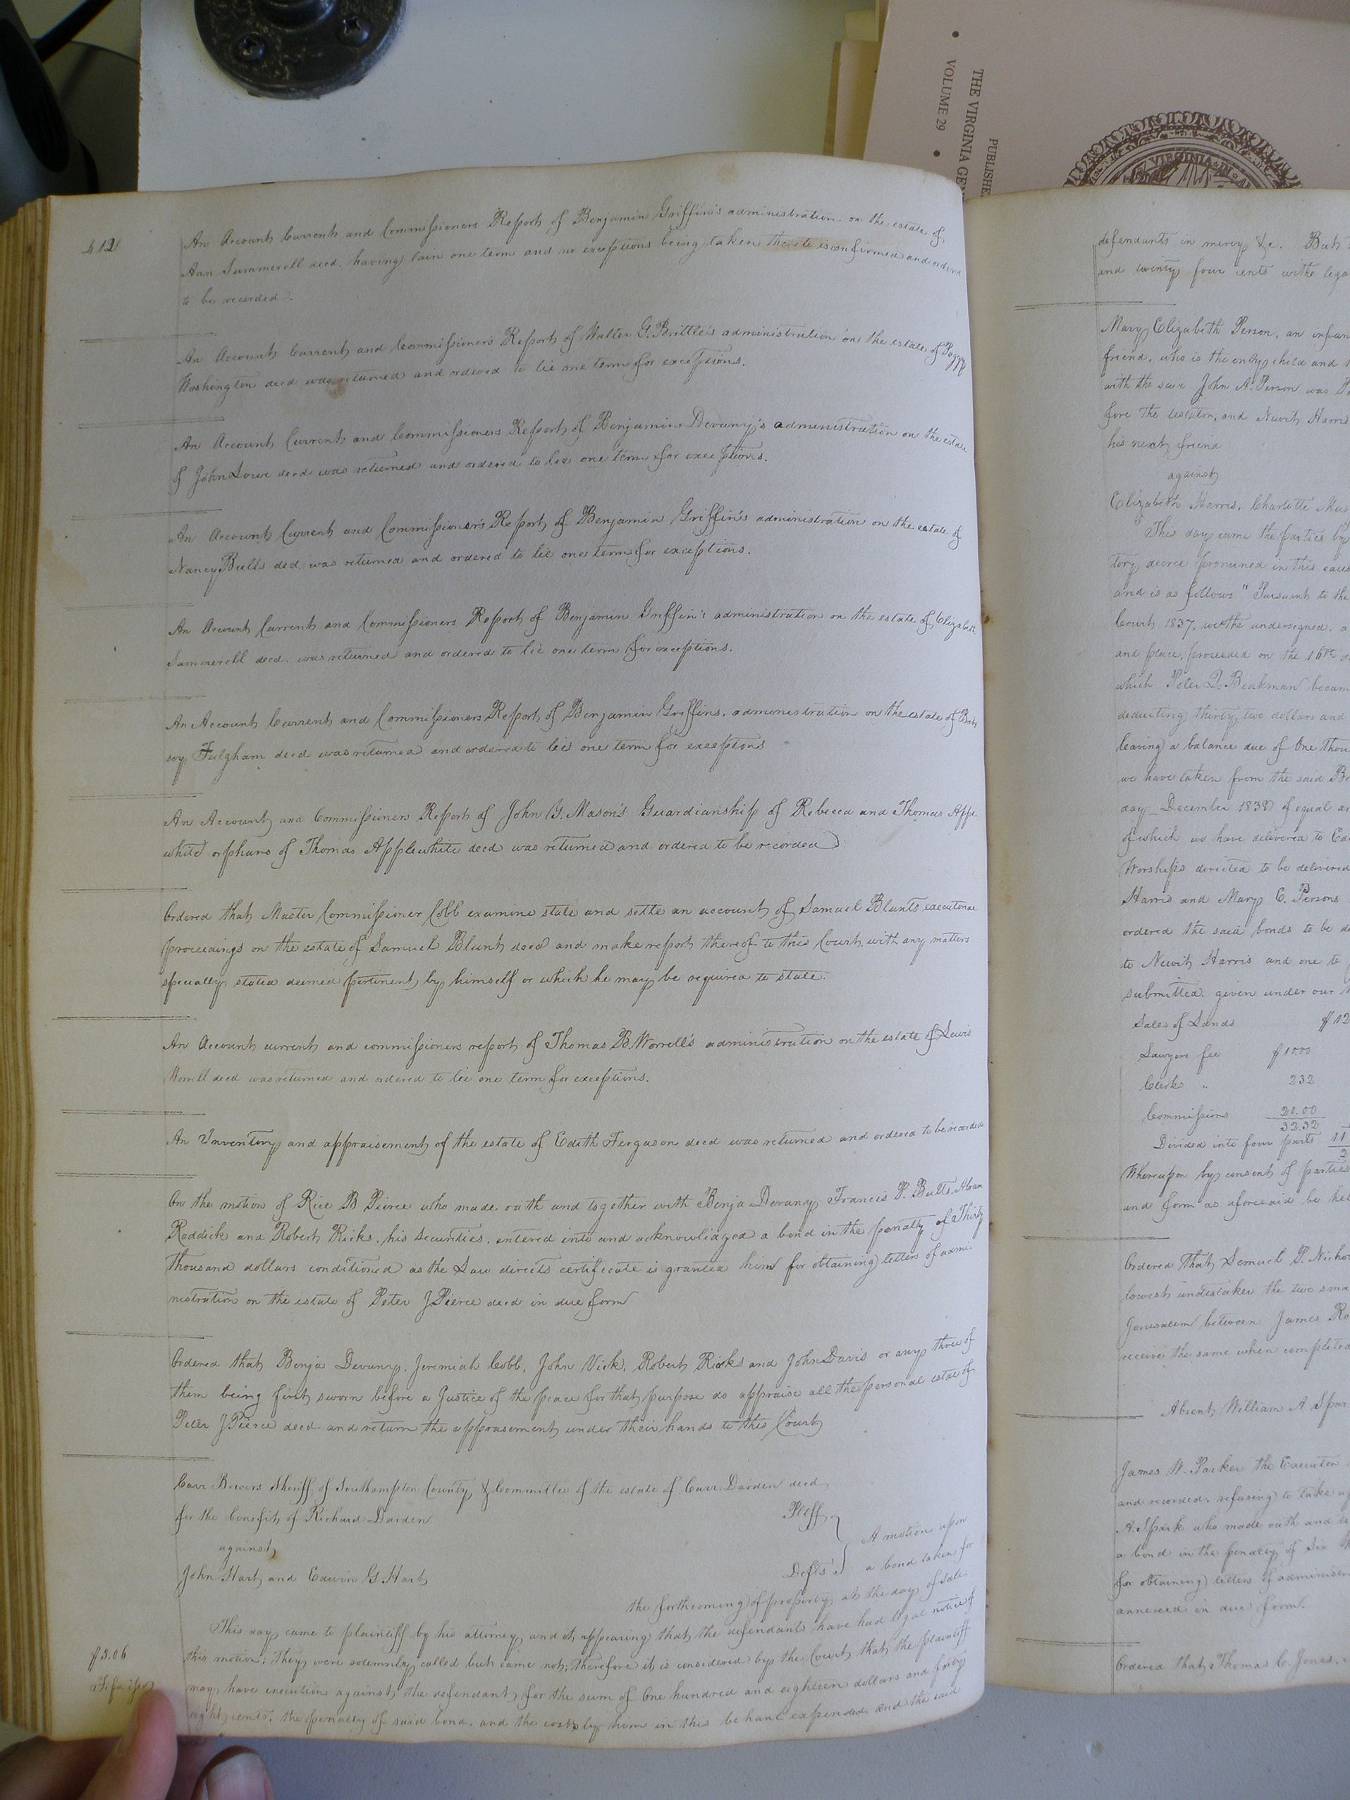 THE VIRGINIA GE
VOLUME 29
PUBLISHE
VIRGINIA
412
An Account Current and Commissioners Report of Benjamin Griffin's administration on the estate of
Ann Summerell decd. having lain one term and no exceptions being taken thereto is confirmed and ordered
to be recorded.
An Account Current and Commissioners Report of Walter G. Brittle's administration on the estate of Peggy
Washington decd was returned and ordered to lie one term for exceptions.
An Account Current and Commissioners Report of Benjamin Devany's administration on the estate
of John Lowe decd was returned and ordered to lie one term for exceptions.
An Account Current and Commissioner's Report of Benjamin Griffin's administration on the estate of
Nancy Butts decd was returned and ordered to lie one term for exceptions.
An Account Current and Commissioners Report of Benjamin Griffin's administration on the estate of Elizabeth
Summerell decd. was returned and ordered to lie one term for exceptions.
An Account Current and Commissioners Report of Benjamin Griffins, administration on the estate of
Fulgham decd was returned and ordered to lie one term for exceptions
An Account and Commissioners Report of John G. Mason's Guardianship of Rebecca and Thomas Apple
white orphans of Thomas Applewhite decd was returned and ordered to be recorded
Ordered that Master Commissioner Cobb examine state and settle an account of Samuel Blunts executorial
proceedings on the estate of Samuel Blunt decd and make report thereof to this Court with any matters
specially stated deemed pertinent by himself or which he may be required to state.
An Account current and commissioners report of Thomas B. Worrell's administration on the estate of Lewis
Worrell decd was returned and ordered to lie one term for exceptions.
An Inventory and appraisement of the estate of Edith Ferguson decd was returned and ordered to be recorded
On the motion of Rice B Pierce who made oath and together with Benja Devany Francis P. Butts
Reddick and Robert Ricks, his securities, entered into and acknowledged a bond in the penalty of Thirty
thousand dollars conditioned as the Law directs certificate is granted him for obtaining letters of admi-
nistration on the estate of Peter J Pierce decd in due form
Ordered that Benja Devany, Jeremiah Cobb, John Vick, Robert Ricks and John Davis or any three of
them being first sworn before a Justice of the peace for that purpose do appraise all the personal estate of
Peter J Pierce decd and return the appraisement under their hands to this Court
Carr Bowers Sheriff of Southampton County & Committee of the estate of Carr Darden decd
for the benefit of Richard Darden Pltff
against A motion upon
John Hart and Edwin G Hart Defts a bond taken for
the forthcoming of property at the day of sale
This day came to plaintiff by his attorney and it appearing that the defendants have had legal notice of
$5.06 this motion; They were solemnly called but came not; therefore it is considered by the Court that the plaintiff
may have execution against the defendants for the sum of One hundred and eighteen dollars and forty
eight cents, the penalty of said bond, and the costs by him in this behalf expended and the said
defendants in mercy &c. But
and twenty four cents with lega
Mary Elizabeth Person, an infan
friend, who is the only child and
with the said John A. Person was
fore the testator, and Newit Harris
his next friend
against
Elizabeth Harris, Charlotte
This day came the parties by
tory decree pronounced in this caus
and is as follows "Pursuant to the
Court 1837, we the undersigned, a
and place, proceeded on the 16th
which Peter Beakman becam
deducting thirty two dollars and
leaving a balance due of One thou
we have taken from the said
day December 1838 of equal
of which we have delivered to
Worships directed to be delivered
Harris and Mary E. Persons
ordered the said bonds to be de
to Newit Harris and one to
submitted given under our
Sales of Lands $12
Lawyers fee $10.00
Clerks " 2.32
Commissions 20.00
32.32
Divided into four parts 11
Whereupon by consent of parties
and form as aforesaid be
Ordered that Samuel B. Nicho
lowest undertaker the two sma
Jerusalem between James Ro
receive the same when completed
Absent, William A Spar
James W. Parker the Executor
and recorded, refusing to take
A. Spark who made oath and
a bond in the penalty of Six
for obtaining letters of administra
annexed in due form.
Ordered that Thomas C. Jones,